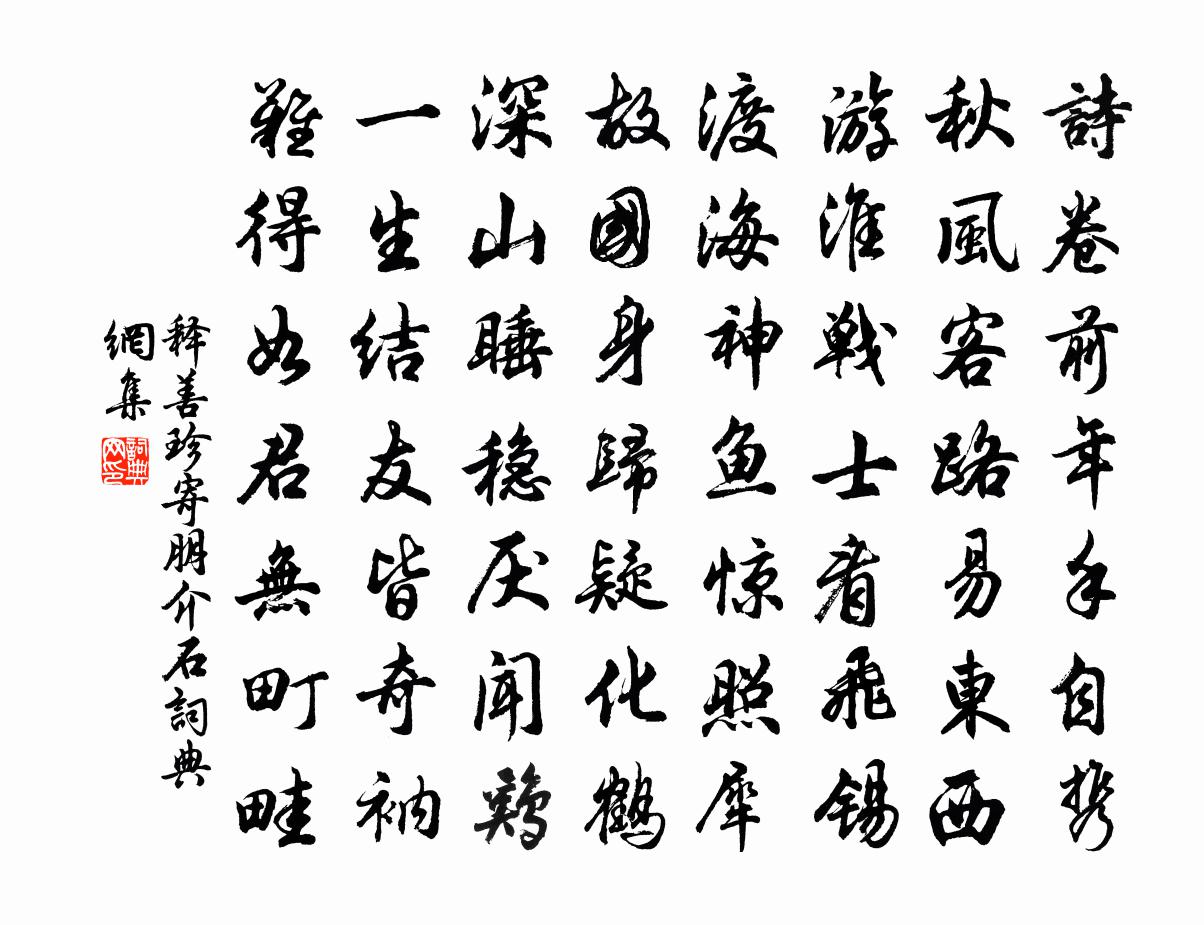 詩卷前年手自携
秋風客路易東西
游淮戰士看飛锡
渡海神鱼惊照犀
故國身歸疑化鶴
深山睡稳厌闻鷄
一生结友皆奇衲
難得如君無町畦
释善珍寄朋介石詞典
網集
詞典
网印